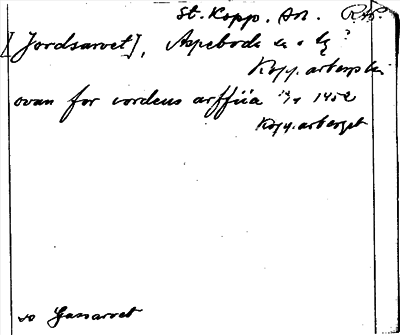 St. Kopp. Ab. RAP.
[Jordsarvet], Aspeboda sn o lg?
Kopparbergs län
ovan for iordens arffua 14/1 1452
Kopparberget
so Gassarvet